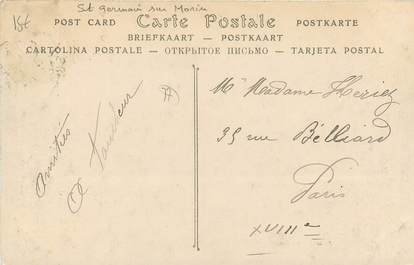 15€
St Germain sur Morin
POST CARD Carte Postale POSTKARTE
BRIEFKAART — POSTKAART
CARTOLINA POSTALE — ОТКРЫТОЕ ПИСЬМО — TARJETA POSTAL
Amitiés
Mr Madame
35 rue Belliard
Paris
XVIIIe